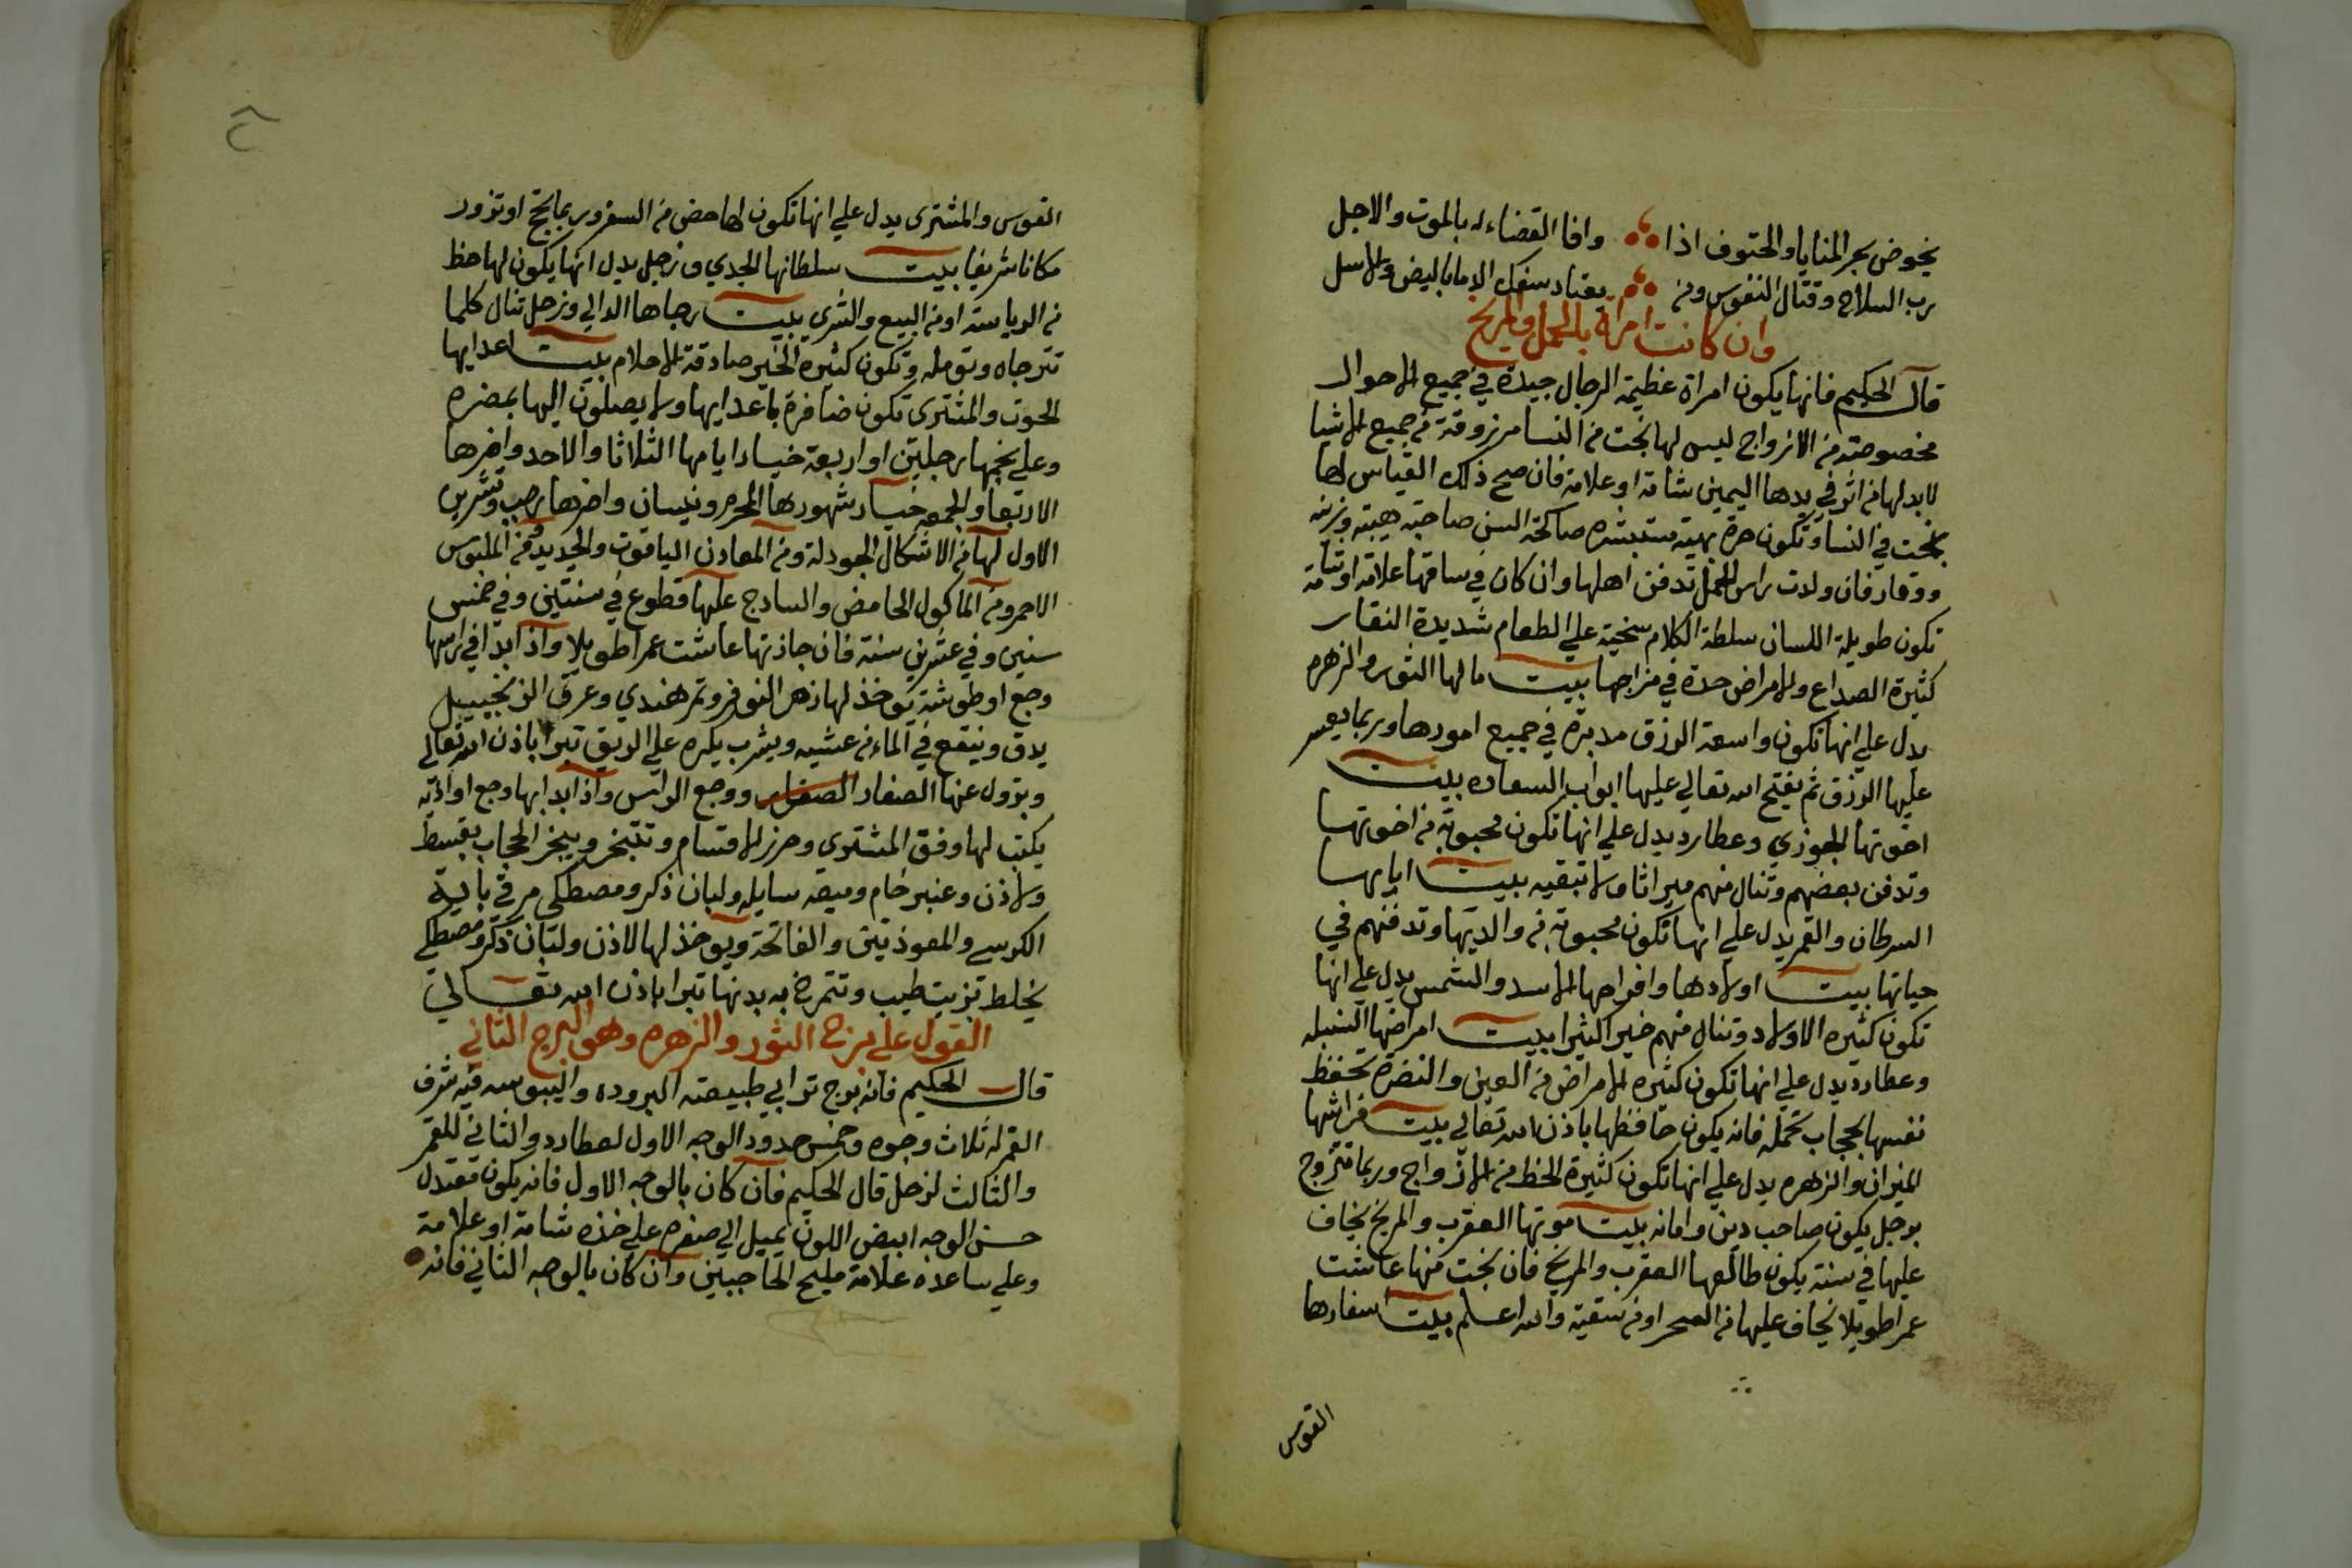 يخوض بحر المنايا والحتوف اذا وافا القضاء له بالموت والاجل
رب السلاح وقتال النفوس ومن يعتاد سفك الدما بالبيض والاسل
وان كانت امراة بالحمل والمريخ
قال الحكيم فانها يكون امراة عظيمة الرجال جيدة في جميع الاحوال
مخصوصة من الازواج ليس لها بخت من النسا مرزوقة من جميع الاشيا
لابد لها من اثر في يدها اليمين شامة او علامة فان صح ذلك القياس لها
بخت في النسا وتكون حرة بهية مستبشره ضاحكة السن صاحبة هيبة وزينه
ووقار فان ولدت براس الحمل تدفن اهلها وان كان في ساقها علامة او شامة
تكون طويلة اللسان سلطة الكلام سخية علي الطعام شديدة النقار
كثيرة الصداع والامراض حدة في مزاجها بيت مالها الثور والزهره
يدل علي انها تكون واسعة الرزق مدبرة في جميع امورها وربما يعسر
عليها الرزق ثم يفتح الله تعالي عليها ابواب السعاده بيت
اخوتها الجوزي وعطارد يدل علي انها تكون محبوبة من اخوتها
وتدفن بعضهم وتنال منهم ميراثا ولا تبقيه بيت ابايها
السرطان والقمر يدل علي انها تكون محبوبة من والديها وتدفنهم في
حياتها بيت اولادها وافراحها الاسد والشمس يدل علي انها
تكون كثيره الاولاد وتنال منهم خير اكثيرا بيت امراضها السنبله
وعطارد يدل علي انها تكون كثيره الامراض من العين والنضرة تحفظ
نفسها بحجاب تحمله فانه يكون حافظها باذن الله تعالي بيت فراشها
الميزان والزهره يدل علي انها تكون كثيرة الحظ من الازواج وربما تتزوج
برجل يكون صاحب دين وامانه بيت موتها العقرب والمريخ يخاف
عليها في سنة يكون طالعها العقرب والمريخ فان نجت منها عاشت
عمرا طويلا يخاف عليها من السحر او من سقية والله اعلم بيت اسفارها
القوس
القوس والمشتري يدل علي انها تكون لها حض من السفر وربما تحج او تزور
مكانا شريفا بيت سلطانها الجدي وزحل يدل انها يكون لها حظ
من الرياسة او من البيع والشري بيت رجاها الدالي وزحل تنال كلما
تترجاه وتومله وتكون كثيرة الخير صادقة الاحلام بيت اعدايها
الحوت والمشتري تكون ضافرة باعدايها ولا يصلون اليها بمضره
وعلي نجمها رجلين او اربعة خيار ايامها الثلاثا والاحد واضرها
الاربعا والجمعه خيار شهورها المحرم ونيسان واضرها رجب وتشرين
الاول لها من الاشكال الجودلة ومن المعادن الياقوت والحديد ومن الملبوس
الاحمر ومن الماكول الحامض والسادج عليها قطوع في سنتين وفي خمس
سنين وفي عشرين سنة فان جازتها عاشت عمرا طويلا واذا بدا في راسها
وجع او طوشة يوخذ لها زهر النوفر وتمر هندي وعرق الزنجبيل
يدق وينقع في الماء من عشيه ويشرب بكره علي الريق تبرا باذن الله تعالي
ويزول عنها الصفار ووجع الراس واذا بدا بها وجع او اذية
يكتب لها وفق المشتري وحرز الاقسام وتتبخر ويبخر الحجاب بقسط
ولاذن وعنبر خام وميعه سايله ولبان ذكر ومصطكي مرقي باية
الكرسي والمعوذتين والفاتحة ويوخذ لها لاذن ولبان ذكر ومصطكي
يخلط بزيت طيب وتتمرخ به بدنها تبرا باذن الله تعالي
القول علي برج الثور والزهره وهو البرج الثاني
قال الحكيم فانه برج ترابي طبيعته البروده واليبوسه فيه شرف
القمر له ثلاث وجوه وخمس حدود الوجه الاول لعطارد والثاني للقمر
والثالث لزحل قال الحكيم فان كان بالوجه الاول فانه يكون معتدل
حسن الوجه ابيض اللون يميل الي صفره علي خذه شامة او علامة
وعلي ساعده علامة مليح الحاجبين وان كان بالوجه الثاني فانه